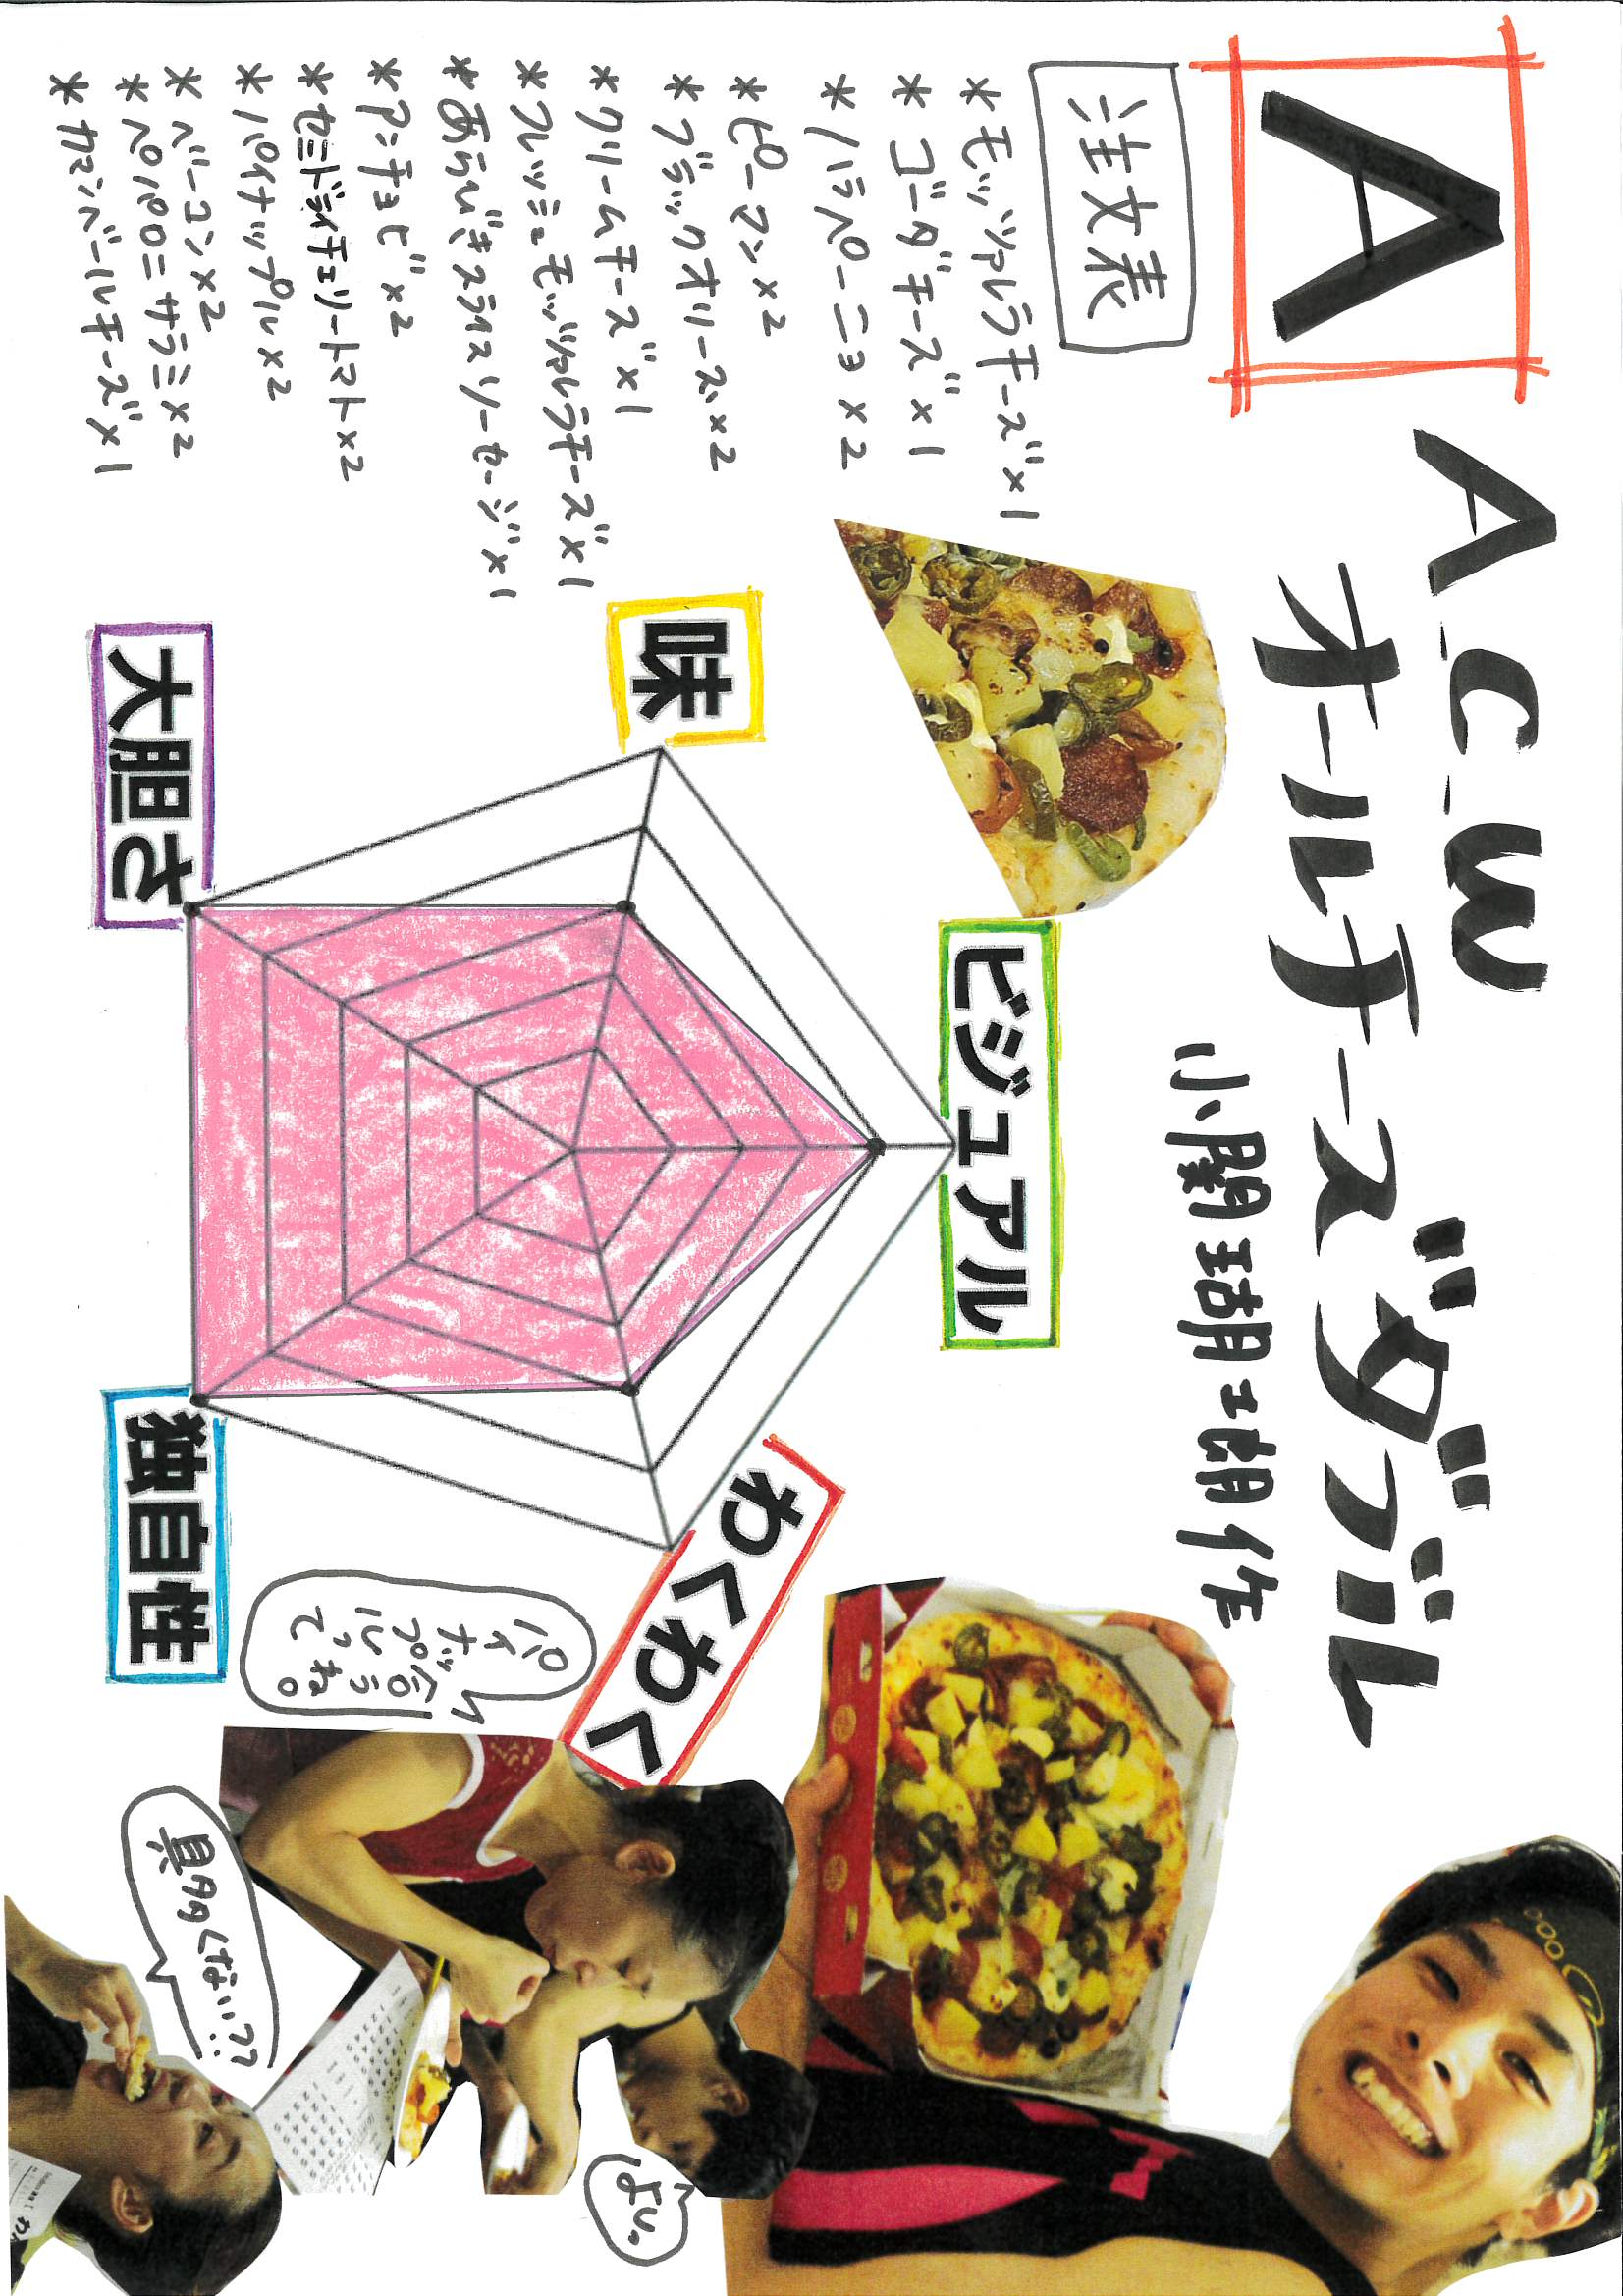 A
A_C_W
オールチーズダブル
小関瑚二朗 作
注文表
*モッツァレラチーズ×1
*ゴーダチーズ×1
*ハラペーニョ×2
*ピーマン×2
*ブラックオリーブ×2
*クリームチーズ×1
*フレッシュモッツァレラチーズ×1
*あらびきスライスソーセージ×1
*アンチョビ×2
*セミドライチェリートマト×2
*パイナップル×2
*ベーコン×2
*ペパロニサラミ×2
*カマンベールチーズ×1
ビジュアル
味
わくわく
大胆さ
独自性
パイ
ナップ
ルって
合うね。
具多くない??
よい。